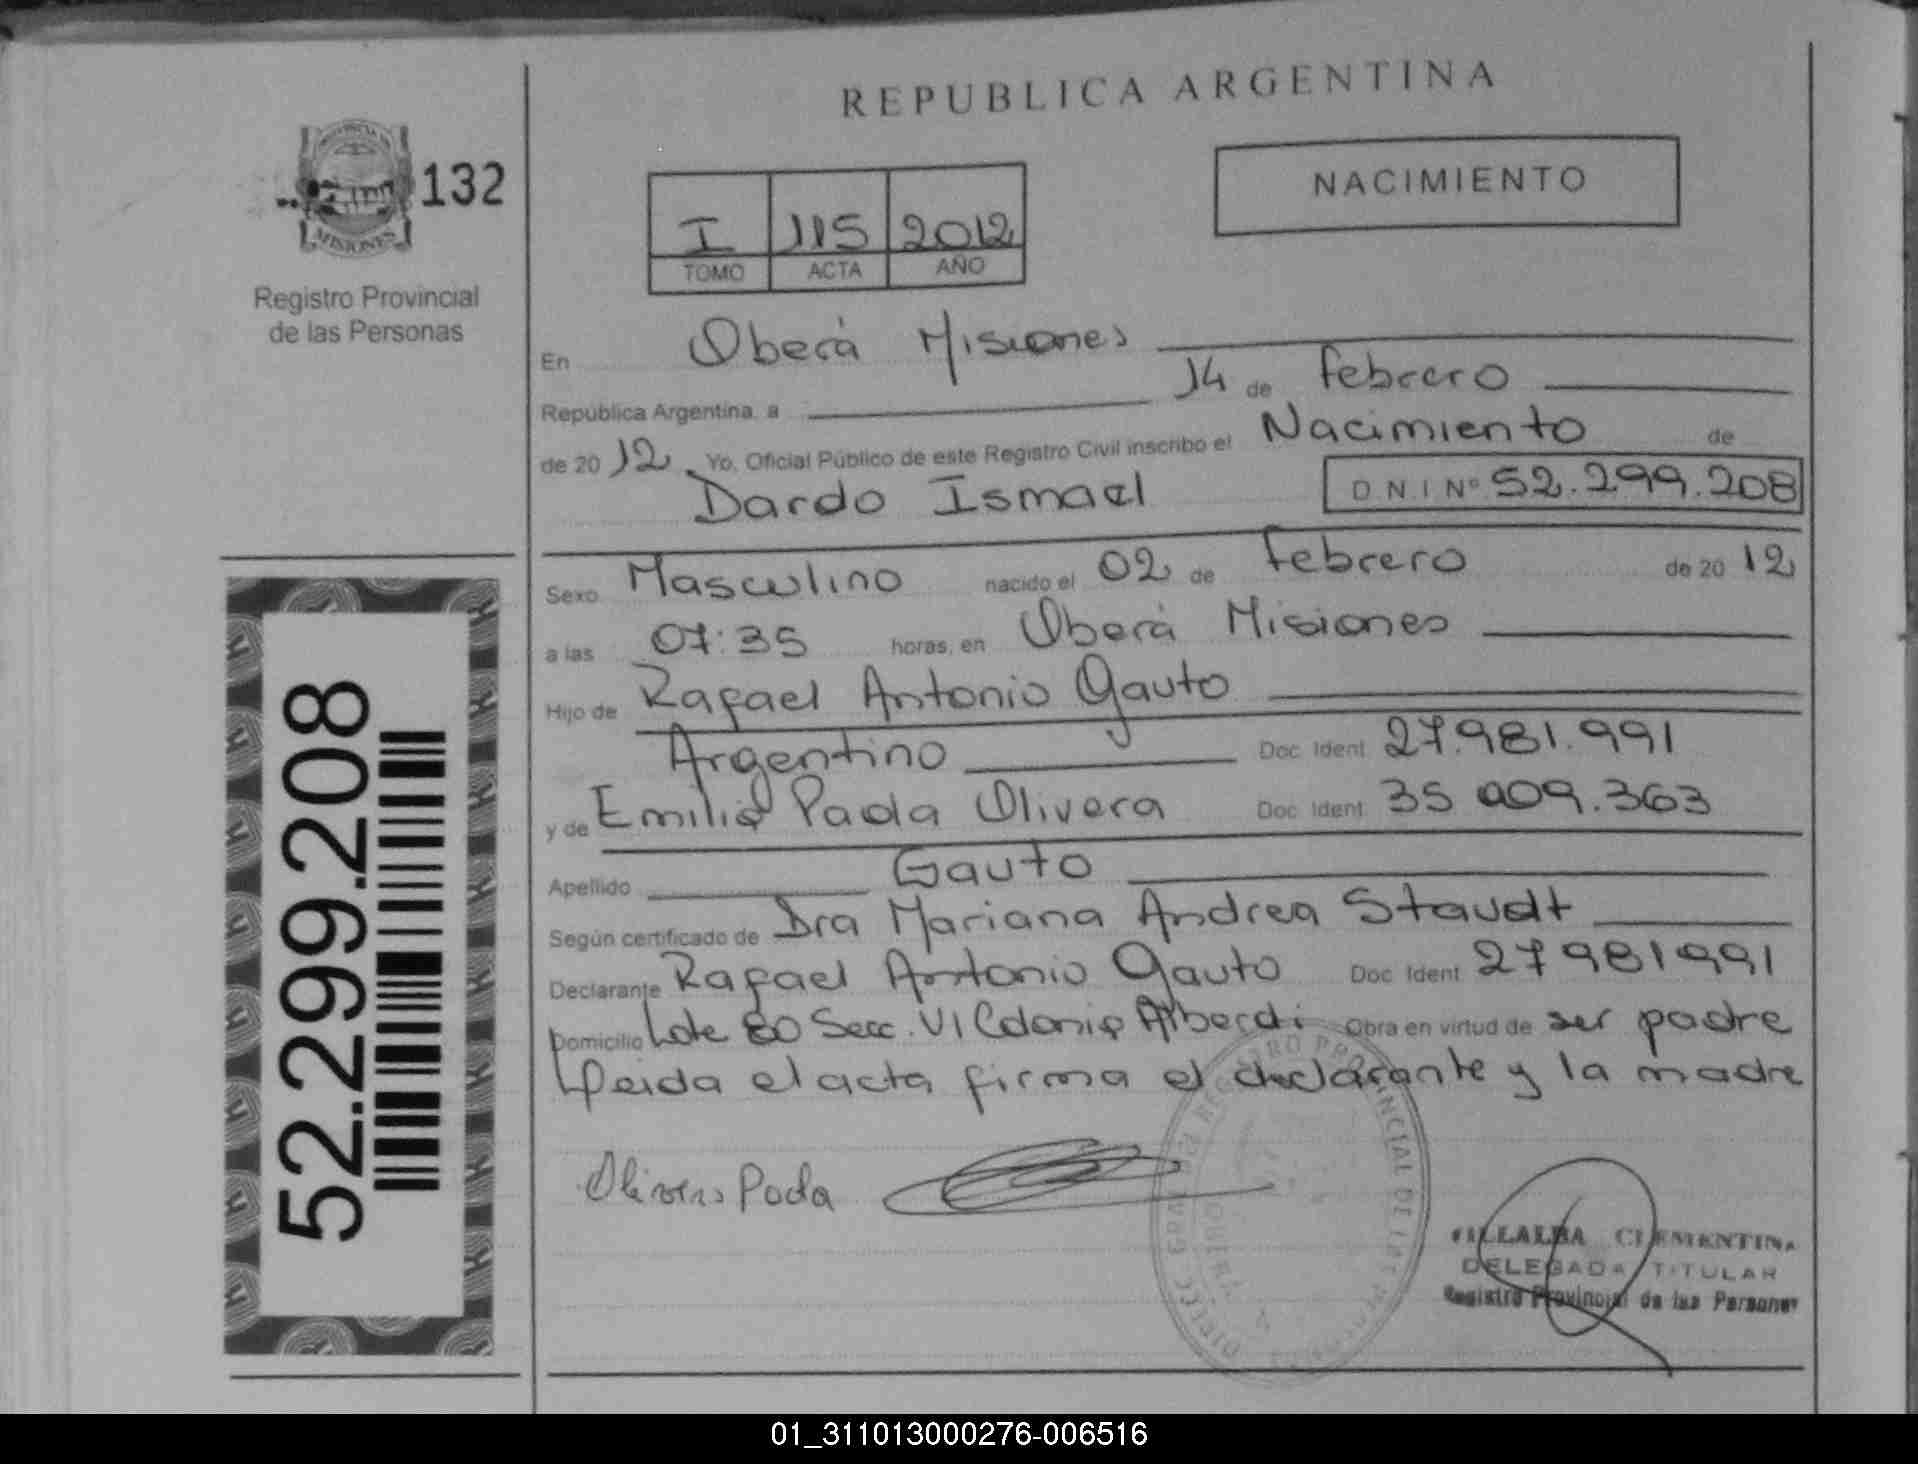 REPUBLICA ARGENTINA
PROVINCIA DE
MISIONES
132
Registro Provincial
de las Personas
I 115 2012
TOMO ACTA AÑO
NACIMIENTO
En Oberá Misiones
República Argentina, a 14 de febrero
de 2012, Yo, Oficial Público de este Registro Civil inscribo el Nacimiento de
Dardo Ismael D N I Nº 52.299.208
Sexo Masculino nacido el 02 de febrero de 2012
a las 07:35 horas, en Oberá Misiones
Hijo de Rafael Antonio Gauto
Argentino Doc Ident 27.981.991
y de Emilia Paola Olivera Doc Ident 35 009.363
Apellido Gauto
Según certificado de Dra Mariana Andrea Staudt
Declarante Rafael Antonio Gauto Doc Ident 27981991
Domicilio Lote 80 Secc. VI Colonia Alberdi Obra en virtud de ser padre
Leida el acta firma el declarante y la madre
Olivera Paola
VILLALBA CLEMENTINA
DELEGADA TITULAR
Registro Provincial de las Personas
REGISTRO PROVINCIAL DE
52.299.208
01_311013000276-006516